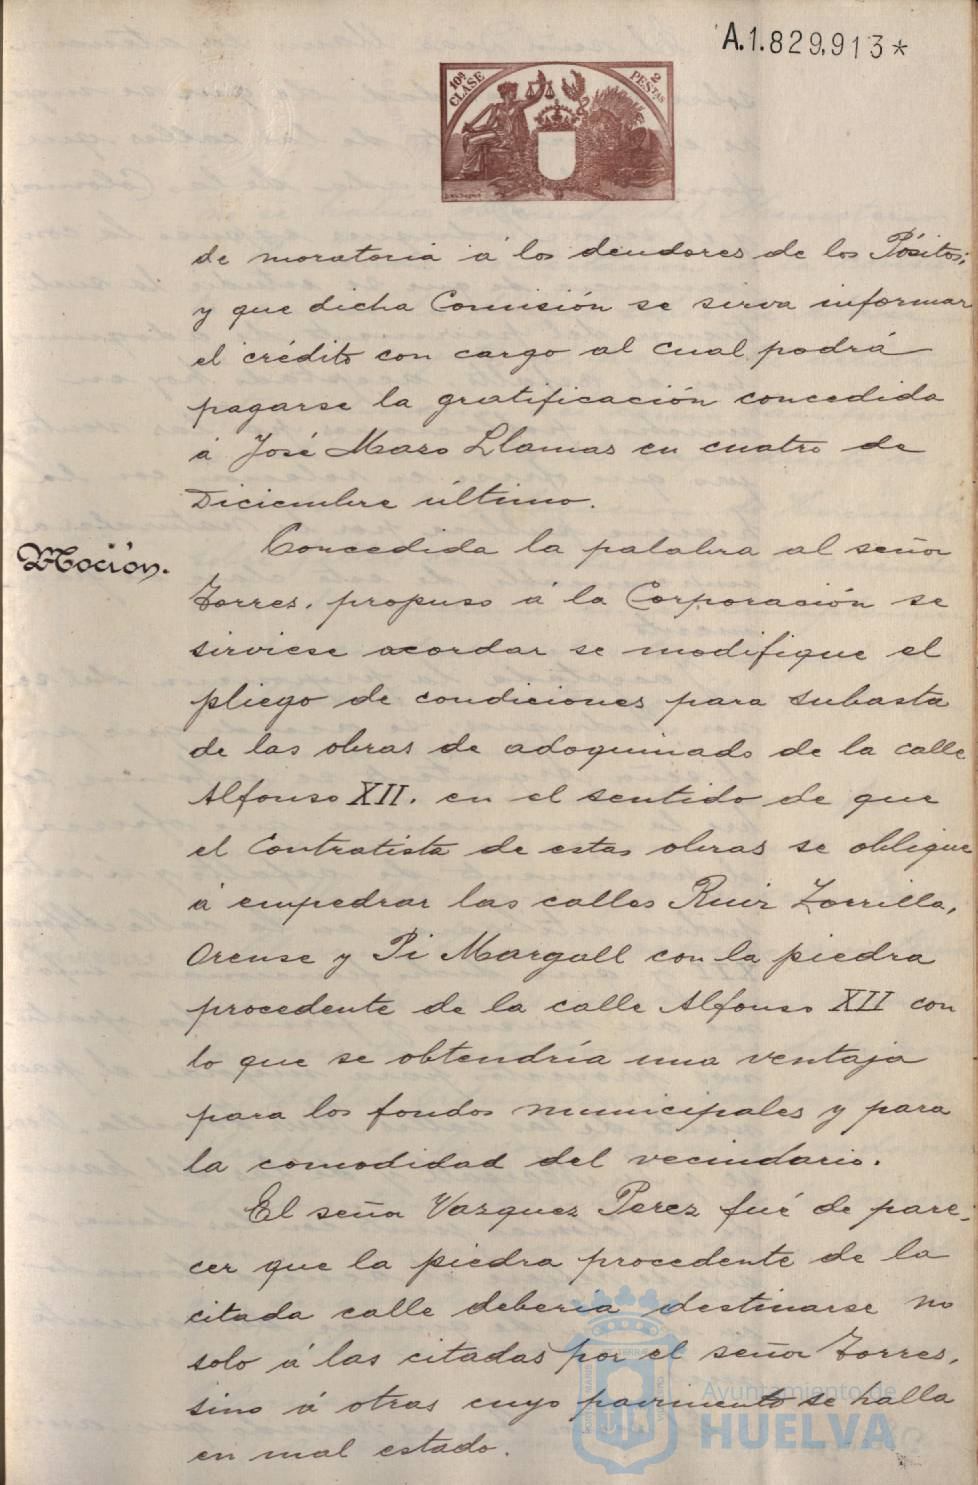 A.1.829,913*
10ª CLASE
2 PESTAS
de moratoria á los deudores de los Pósitos;
y que dicha Comisión se sirva informar
el crédito con cargo al cual podrá
pagarse la gratificación concedida
á José Maro Llamas en cuatro de
Diciembre último.
Moción.
Concedida la palabra al señor
Torres, propuso á la Corporación se
sirviese acordar se modifique el
pliego de condiciones para subasta
de las obras de adoquinado de la calle
Alfonso XII. en el sentido de que
el Contratista de estas obras se obligue
á empedrar las calles Ruiz Zorrilla,
Orense y Pi Margall con la piedra
procedente de la calle Alfonso XII con
lo que se obtendría una ventaja
para los fondos municipales y para
la comodidad del vecindario.
El señor Vazquez Perez fué de pare-
cer que la piedra procedente de la
citada calle deberia destinarse no
solo á las citadas por el señor Torres,
sino á otras cuyo pavimento se halla
en mal estado.
Ayuntamiento de
HUELVA